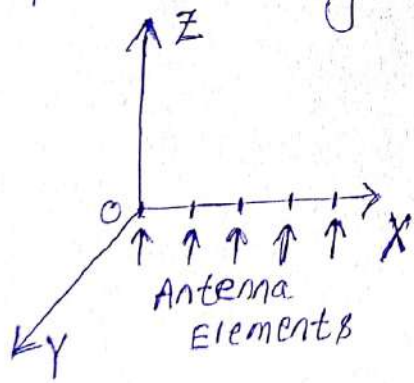 Z
O
X
Antenna
Elements
Y